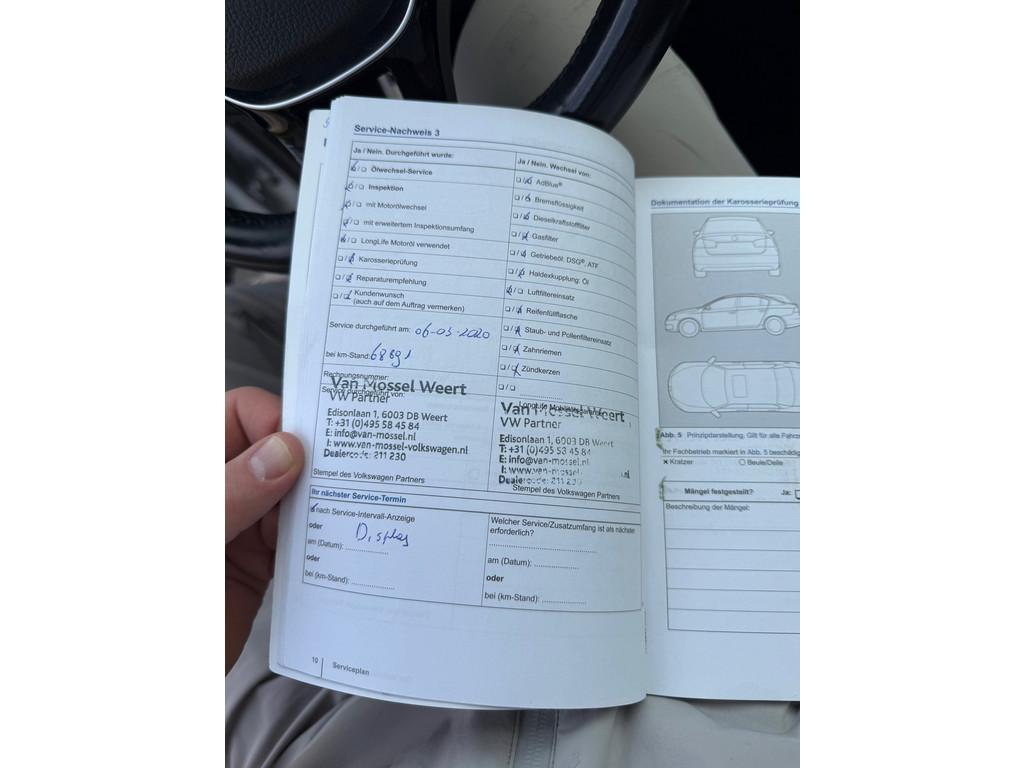 Service-Nachweis 3
Ja / Nein. Durchgeführt wurde:
Ölwechsel-Service
Inspektion
mit Motorölwechsel
mit erweitertem Inspektionsumfang
LongLife Motoröl verwendet
Karosserieprüfung
Reparaturempfehlung
Kundenwunsch
(auch auf dem Auftrag vermerken)
Service durchgeführt am: 06-03-2020
bei km-Stand: 68891
Rechnungsnummer:
Service durchgeführt von:
Van Mossel Weert
VW Partner
Edisonlaan 1, 6003 DB Weert
T: +31 (0)495 58 45 84
E: info@van-mossel.nl
I: www.van-mossel-volkswagen.nl
Dealercode: 211 230
Stempel des Volkswagen Partners
Ja / Nein. Wechsel von:
AdBlue®
Bremsflüssigkeit
Dieselkraftstofffilter
Gasfilter
Getriebeöl: DSG®, ATF
Haldexkupplung: Öl
Luftfiltereinsatz
Reifenfüllflasche
Staub- und Pollenfiltereinsatz
Zahnriemen
Zündkerzen
LongLife
Van Mossel Weert
VW Partner
Edisonlaan 1, 6003 DB Weert
T: +31 (0)495 58 45 84
E: info@van-mossel.nl
I: www.van-mossel- .nl
Dealercode: 211 230
Stempel des Volkswagen Partners
Ihr nächster Service-Termin
nach Service-Intervall-Anzeige
oder Display
am (Datum): ................
oder
bei (km-Stand): ................
Welcher Service/Zusatzumfang ist als nächster
erforderlich?
am (Datum): ................
oder
bei (km-Stand): ................
10 Serviceplan
Dokumentation der Karosserieprüfung
Abb. 5 Prinzipdarstellung, Gilt für alle
Ihr Fachbetrieb markiert in Abb. 5
× Kratzer ○ Beule/Delle
Mängel festgestellt? Ja:
Beschreibung der Mängel: